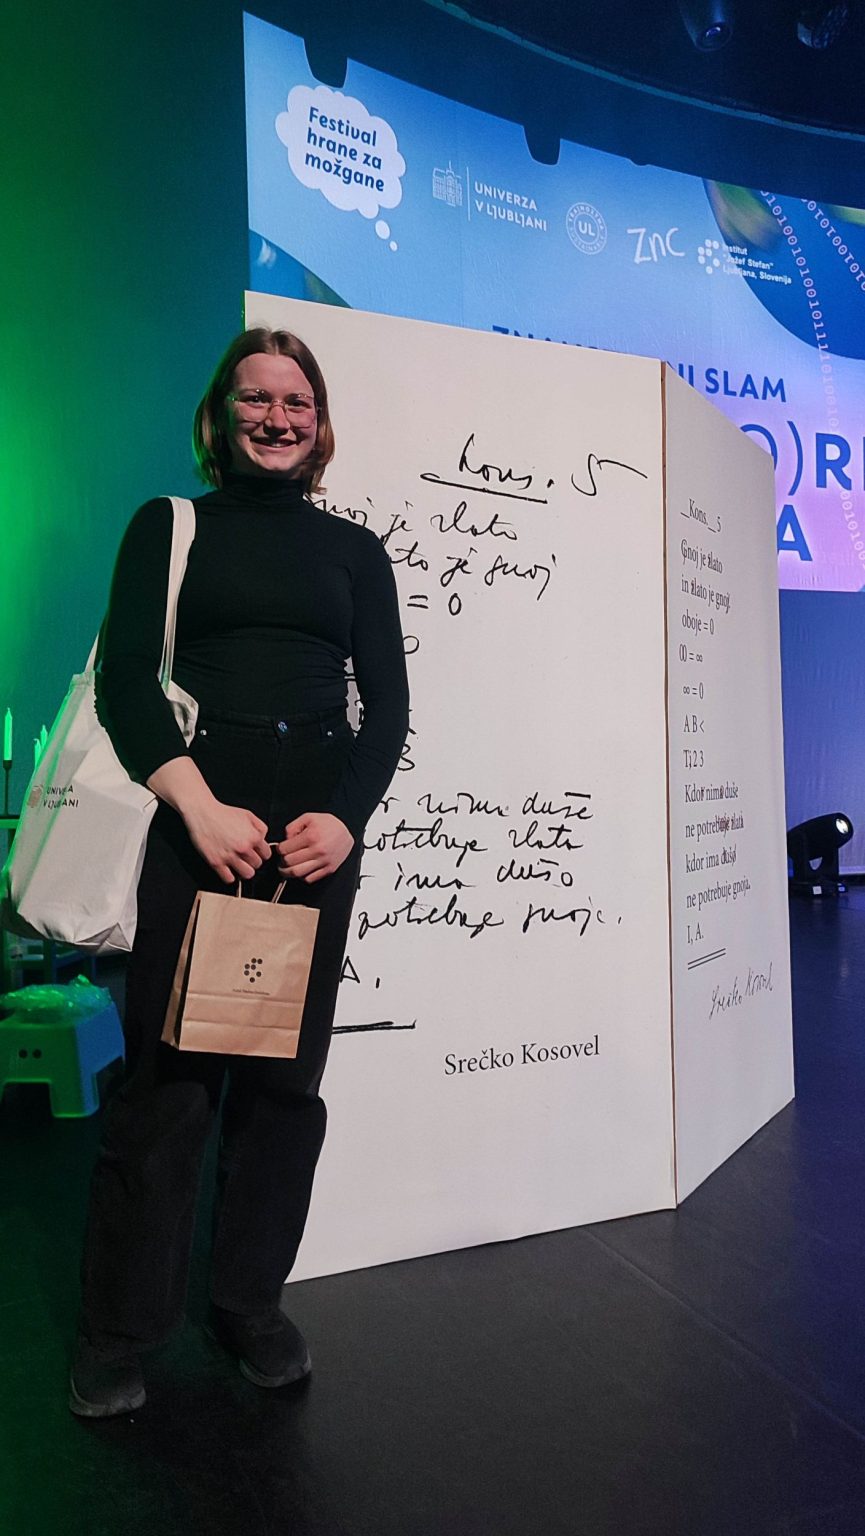 Festival
hrane za
možgane
UNIVERZA
V LJUBLJANI
TRAJNOSTNA
UL
SUSTAINABLE
ZnC
Institut
"Jožef Stefan"
Ljubljana, Slovenija
SLAM
A
Kons. 5
je zlato
je gnoj
= 0
duše
zlata
ima dušo
gnoja.
A.
Srečko Kosovel
_Kons._ 5
Gnoj je zlato
in zlato je gnoj.
oboje = 0
0 = ∞
∞ = 0
A B <
1, 2 3
Kdor nima duše
ne potrebuje zlata
kdor ima dušo
ne potrebuje gnoja.
I, A.
Srečko Kosovel
UNIVERZA
V LJUBLJANI